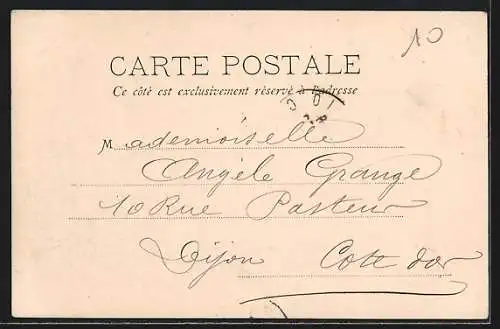 10
CARTE POSTALE
Ce côté est exclusivement réservé à l'adresse
Mademoiselle
Angèle Grange
10 Rue Pasteur
Dijon Cote d'or